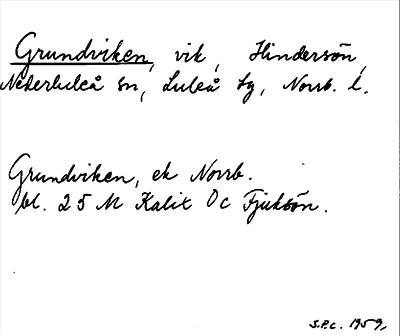 Grundviken, vik, Hindersön,
Nederluleå sn, Luleå tg, Norrb. l.
Grundviken, ek Norrb.
bl. 25 M Kalix Oc Fjuksön.
S.P.C. 1959,